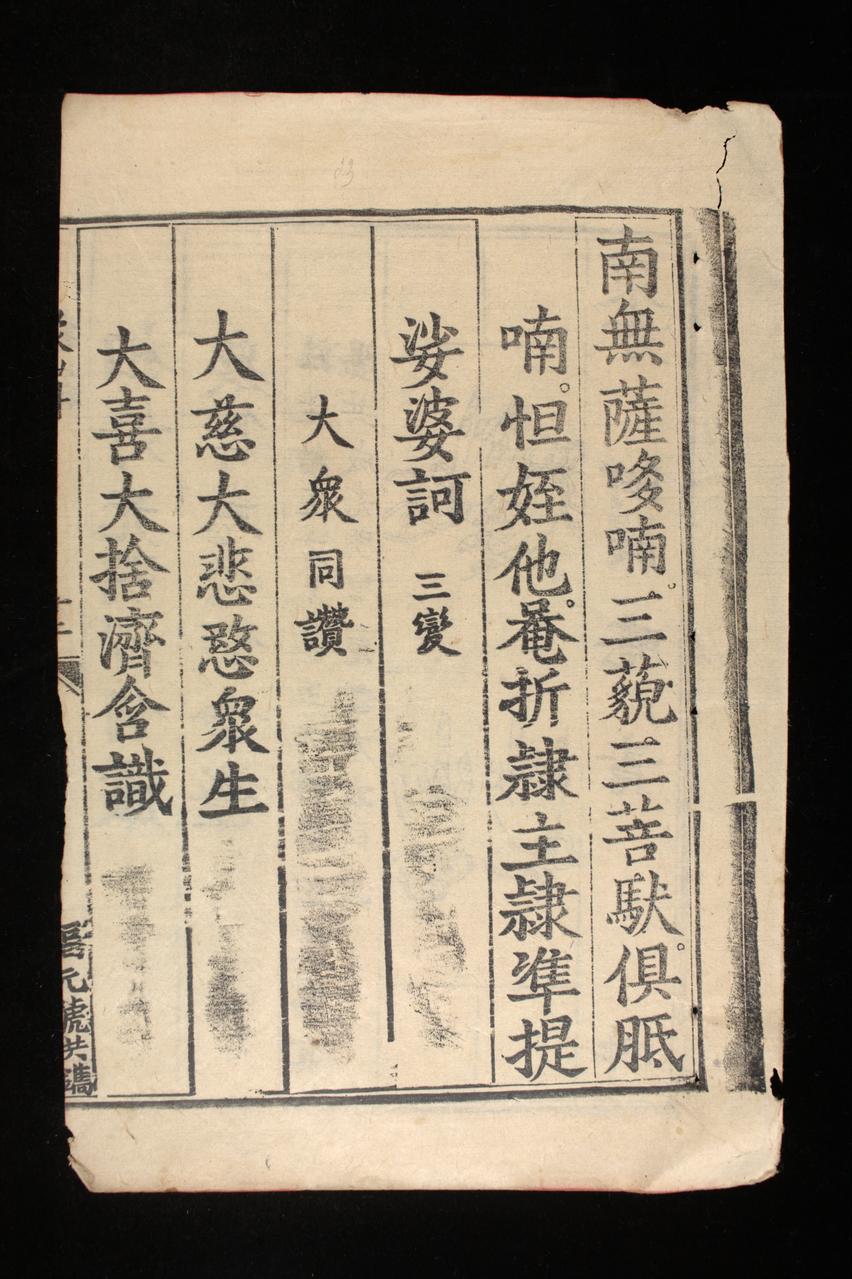 南無薩哆喃。三藐。三菩馱。俱胝
喃。怛姪他。菴折隷主隷準提
娑婆訶 三變
大衆同讚
大慈大悲愍衆生
大喜大捨濟含識